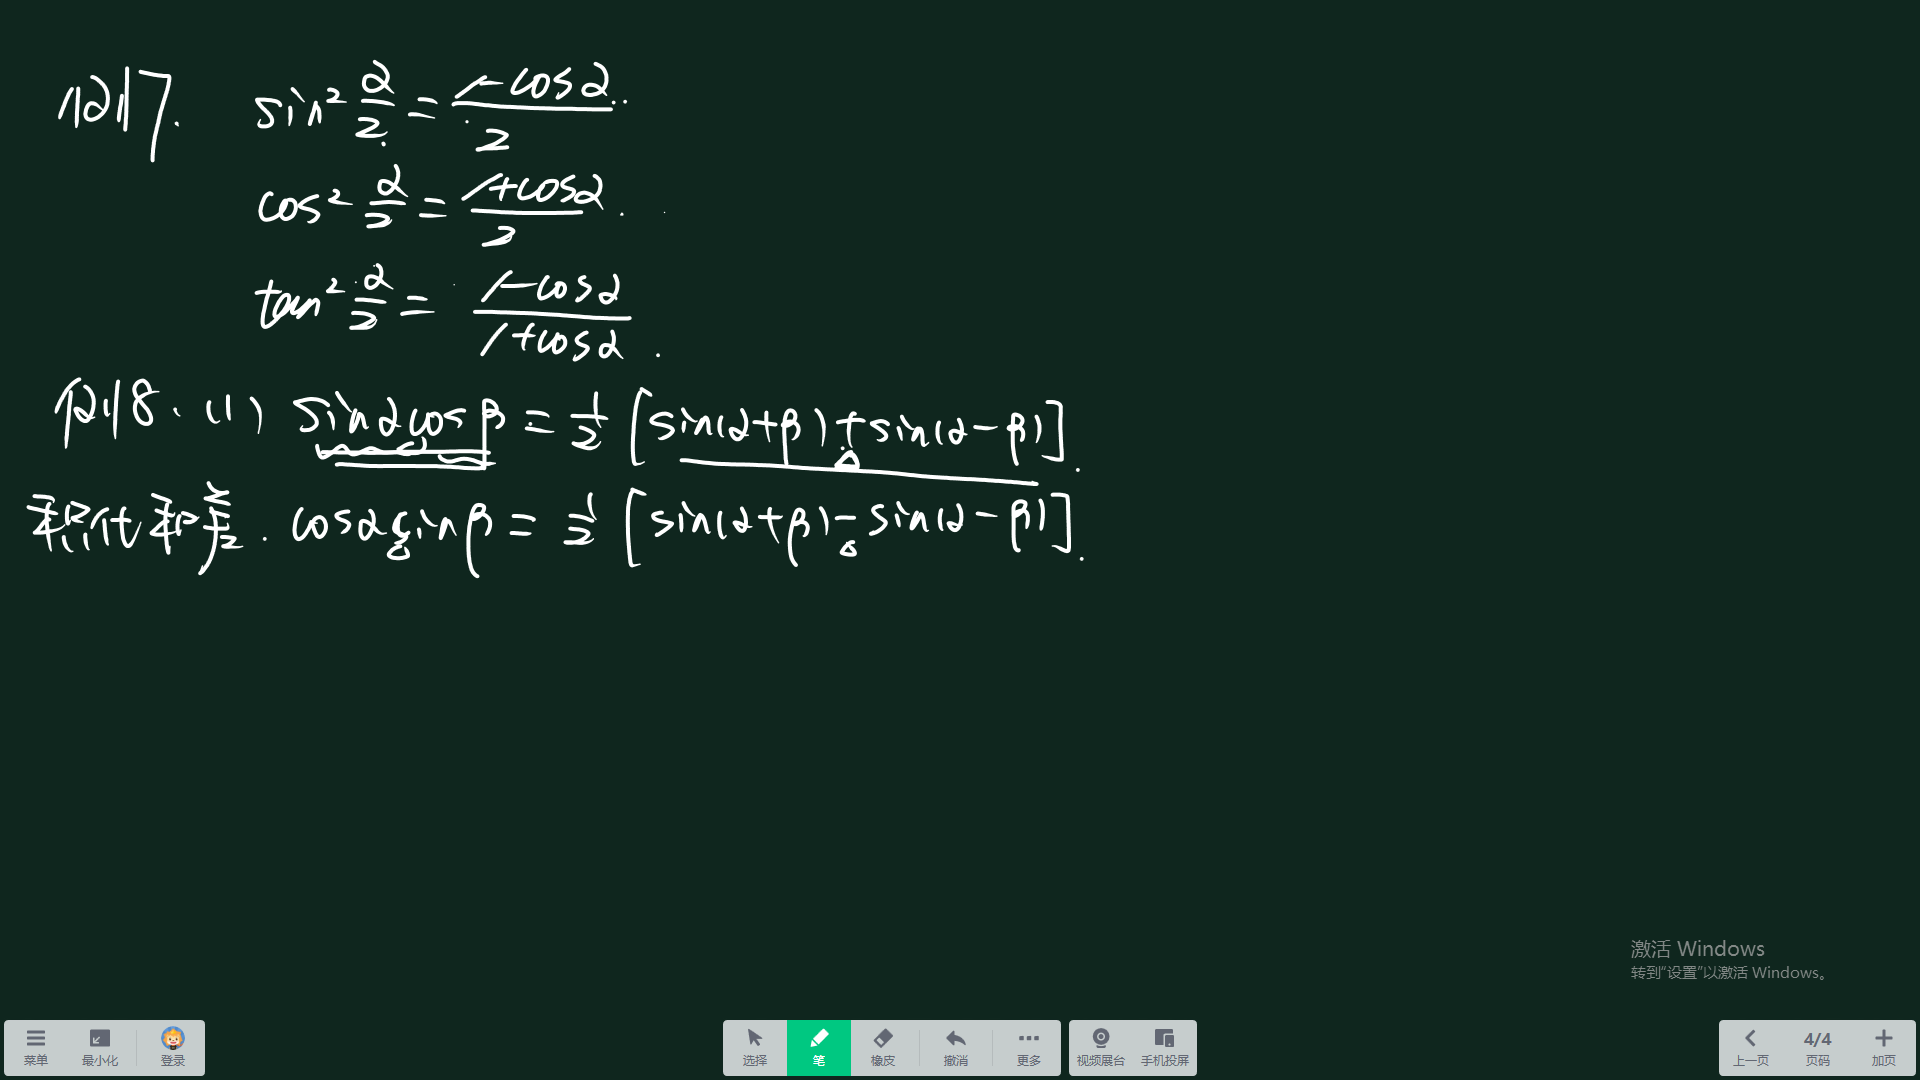 例7. sin² α/2 = (1-cosα)/2.
cos² α/2 = (1+cosα)/2.
tan² α/2 = (1-cosα)/(1+cosα).
例8. (1) sinαcosβ = 1/2 [sin(α+β)+sin(α-β)].
积化和差. cosαsinβ = 1/2 [sin(α+β)-sin(α-β)].
激活 Windows
转到“设置”以激活 Windows。
菜单 最小化 登录 选择 笔 橡皮 撤消 更多 视频展台 手机投屏 上一页 4/4 页码 加页